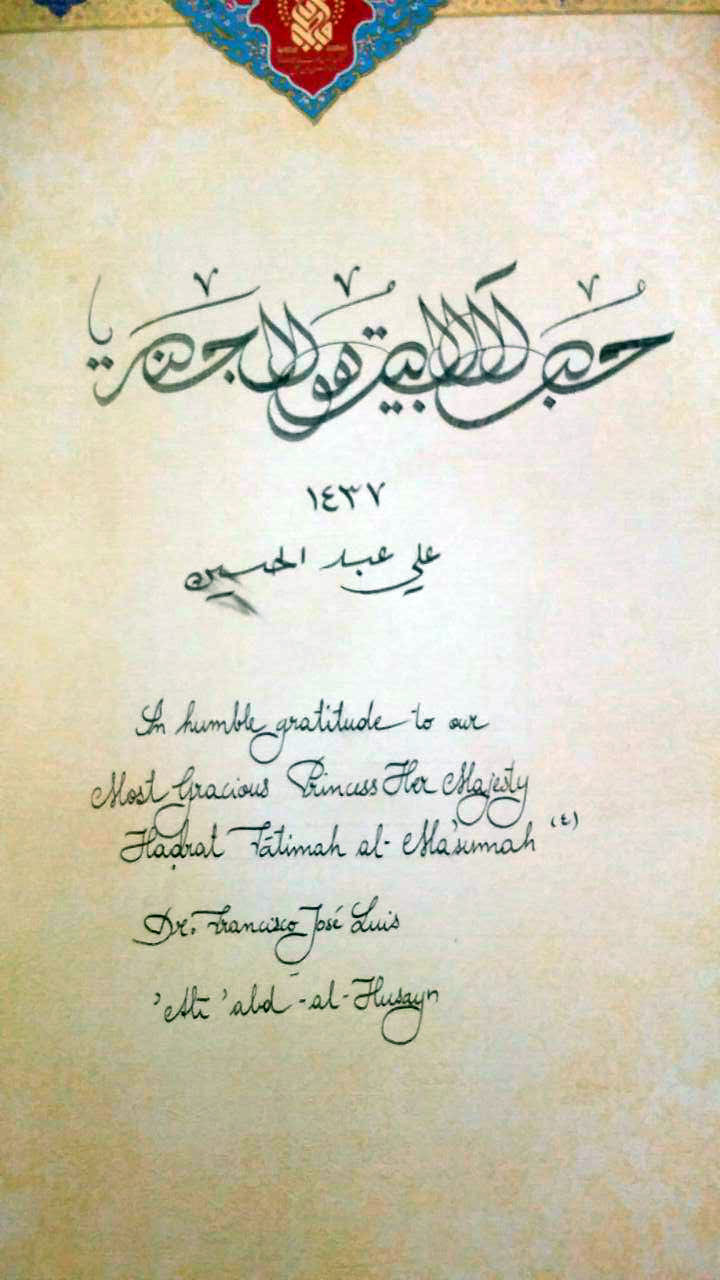 حُب آل البيت هو
١٤٣٧
علي عبد الحسين
In humble gratitude to our
Most Gracious Princess Her Majesty
Haḍrat Fātimah al-Ma'sumah (ع)
Dr. Francisco José Luis
'Alī 'abd-al-Husayn